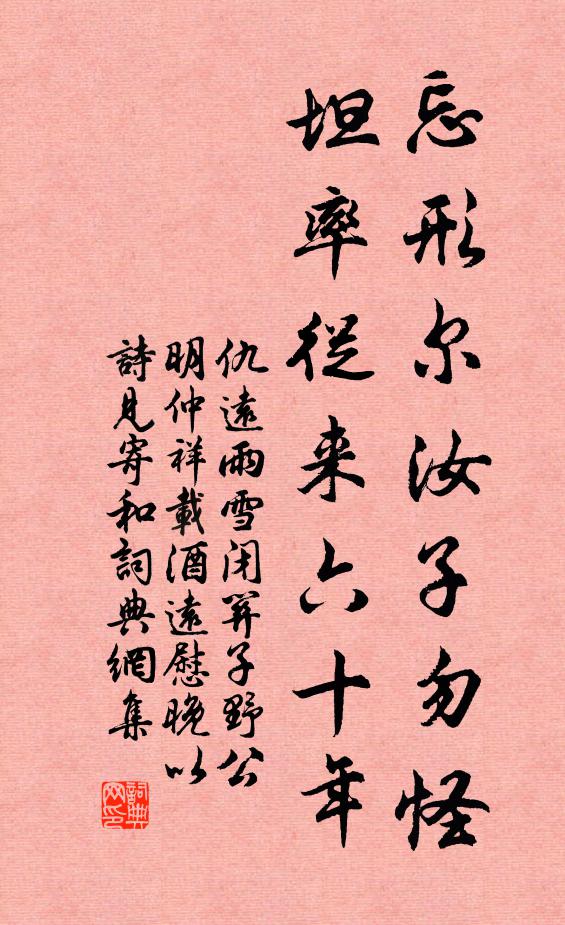 忘形尔汝子勿怪
坦率從来六十年
仇遠雨雪闭關子野公
明仲祥載酒遠慰晚以
詩見寄和詞典網集
詞典网印